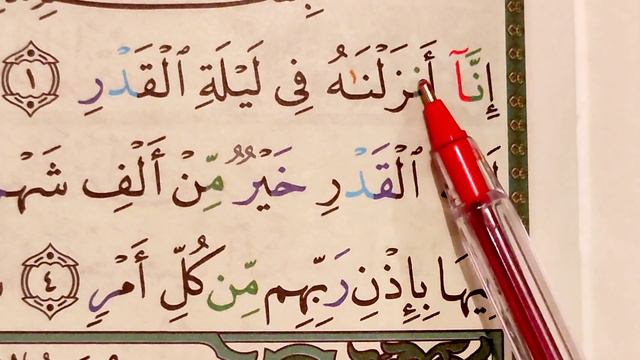 إِنَّآ أَنزَلْنَٰهُ فِى لَيْلَةِ ٱلْقَدْرِ ١
ٱلْقَدْرِ خَيْرٌ مِّنْ أَلْفِ
بِإِذْنِ رَبِّهِم مِّن كُلِّ أَمْرٍ ٤